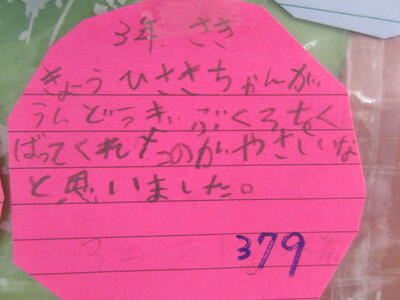 3年 さき
きょうひささちゃんが
うんどうぎぶくろをく
ばってくれたのがやさしいな
と思いました。
379